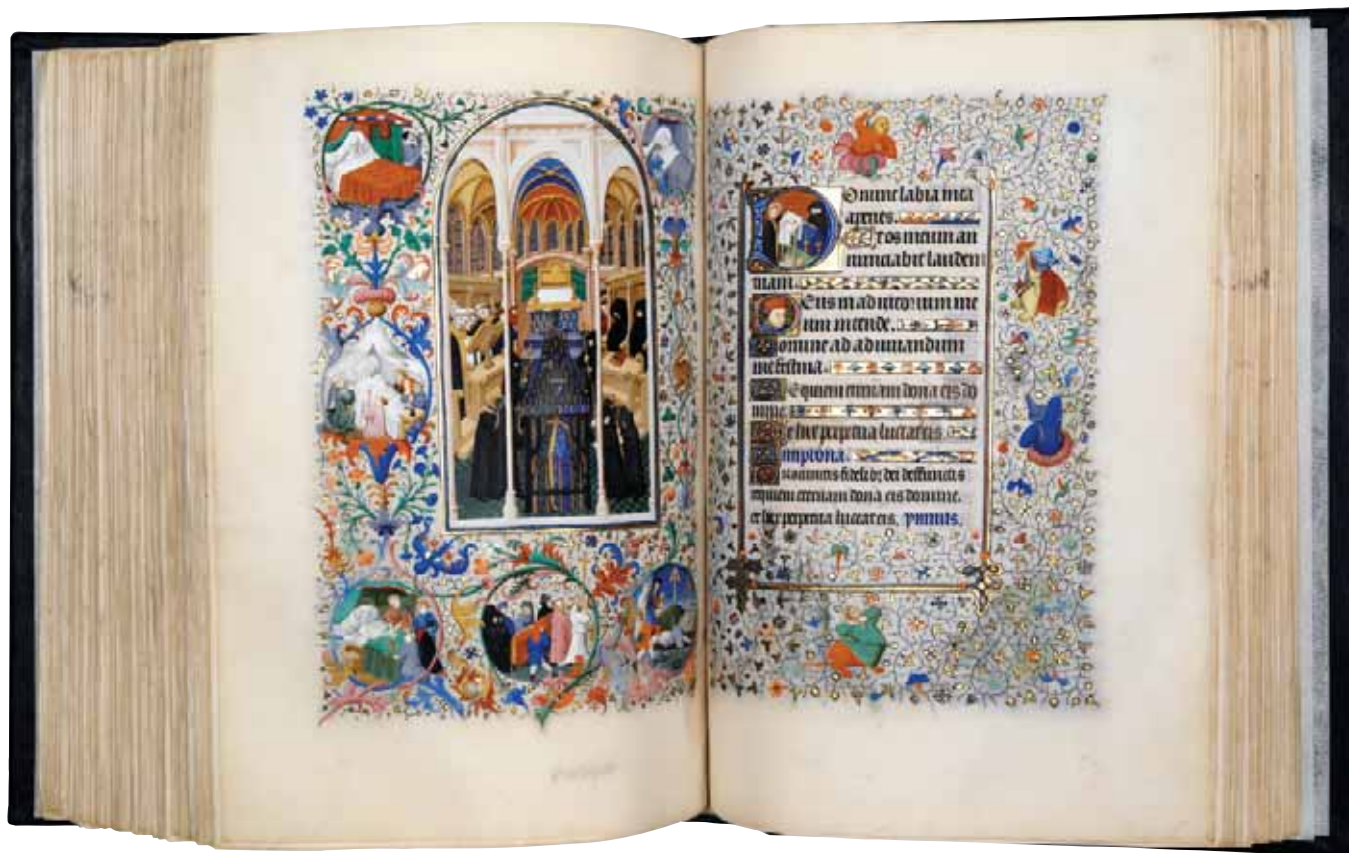 Domine labia mea
aperies.
Et os meum an
nunciabit laudem
tuam.
Deus in adiutorium me
um intende.
Domine ad adiuuandum
me festina.
Requiem eternam dona eis do
mine.
Et lux perpetua luceat eis.
cunctis dei deffunctis
requiem eternam dona eis domine.
et lux perpetua luceat eis.